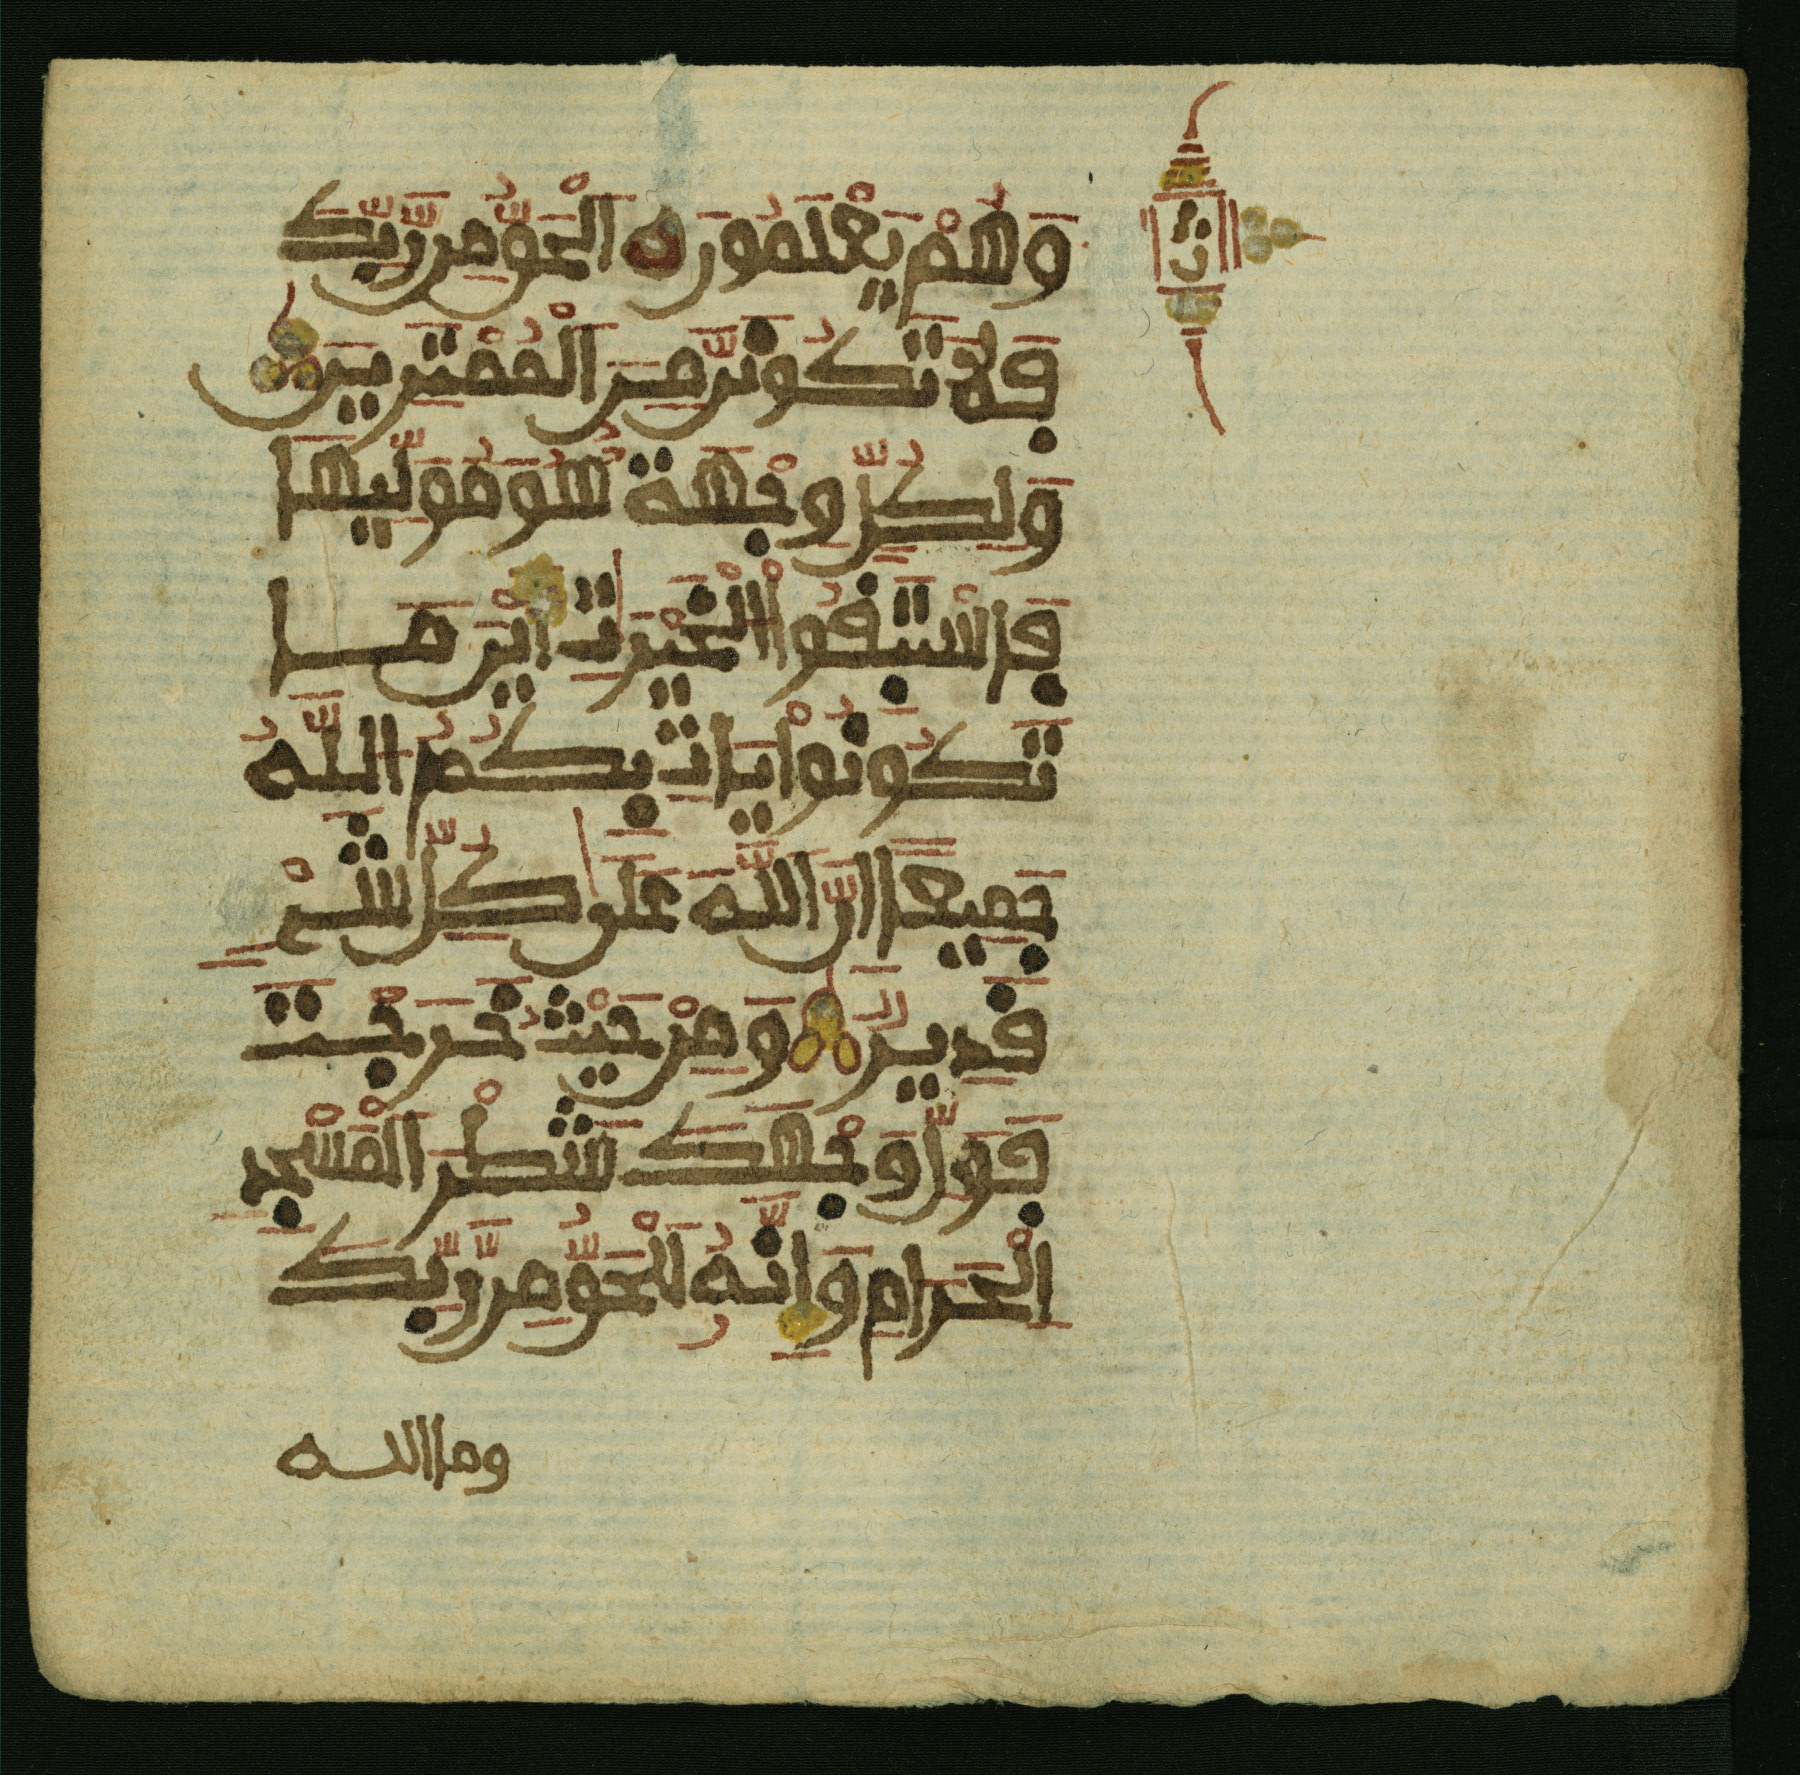 وَهُمْ يَعْلَمُونَ اَلْحَقُّ مِن رَّبِّكَ
فَلَا تَكُونَنَّ مِنَ اَلْمُمْتَرِينَ
وَلِكُلٍّ وِجْهَةٌ هُوَ مُوَلِّيهَا
فَاسْتَبِقُوا اْلْخَيْرَٰتِ أَيْنَ مَا
تَكُونُواْ يَاتِ بِكُمُ اُللَّهُ
جَمِيعاً اِنَّ اَللَّهَ عَلَىٰ كُلِّ شَےْءٍ
قَدِيرٌ وَمِنْ حَيْثُ خَرَجْتَ
فَوَلِّ وَجْهَكَ شَطْرَ اَلْمَسْجِدِ
اِلْحَرَامِ وَإِنَّهُ لَلْحَقُّ مِن رَّبِّكَ
وما الله